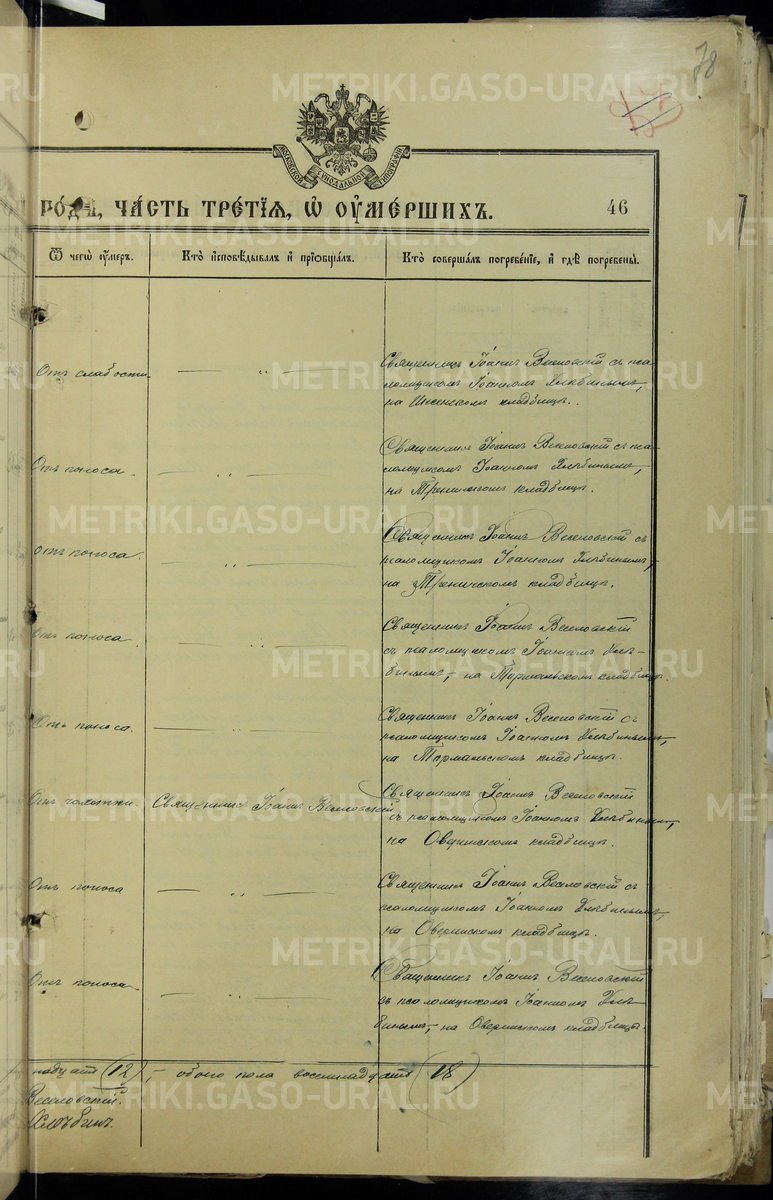 METRIKI.GASO-URAL.RU
78
МОСКОВСКОЙ СѴНОДАЛЬНОЙ ТИПОГРАФІИ
РОДЪ, ЧАСТЬ ТРЕТІЯ, Ѡ ОУМЕРШИХЪ.
46
Ѿ чегѡ оумеръ.
Кто исповѣдывалъ и пріобщалъ.
Кто совершалъ погребеніе, и гдѣ погребены.
Отъ слабости
Священникъ Іоаннъ Веселовскій съ пса-
ломщикомъ Іоанномъ Хлѣбинымъ,
на кладбищѣ.
Отъ поноса
Священникъ Іоаннъ Веселовскій съ пса-
ломщикомъ Іоанномъ Хлѣбинымъ,
на кладбищѣ.
Отъ поноса.
Священникъ Іоаннъ Веселовскій съ
псаломщикомъ Іоанномъ Хлѣбинымъ,
на кладбищѣ.
Отъ поноса.
Священникъ Іоаннъ Веселовскій
съ псаломщикомъ Іоанномъ Хлѣ-
бинымъ, на кладбищѣ.
Отъ поноса.
Священникъ Іоаннъ Веселовскій съ
псаломщикомъ Іоанномъ Хлѣбинымъ,
на кладбищѣ.
Отъ чахотки.
Священникъ Іоаннъ Веселовскій
Священникъ Іоаннъ Веселовскій
съ псаломщикомъ Іоанномъ Хлѣбинымъ,
на Оверинскомъ кладбищѣ.
Отъ поноса
Священникъ Іоаннъ Веселовскій съ
псаломщикомъ Іоанномъ Хлѣбинымъ,
на Оверинскомъ кладбищѣ.
Отъ поноса.
Священникъ Іоаннъ Веселовскій
съ псаломщикомъ Іоанномъ Хлѣ-
бинымъ, на Оверинскомъ кладбищѣ.
надцать (12), – обоего пола восемнадцать (18)
Веселовскій.
Хлѣбинъ.